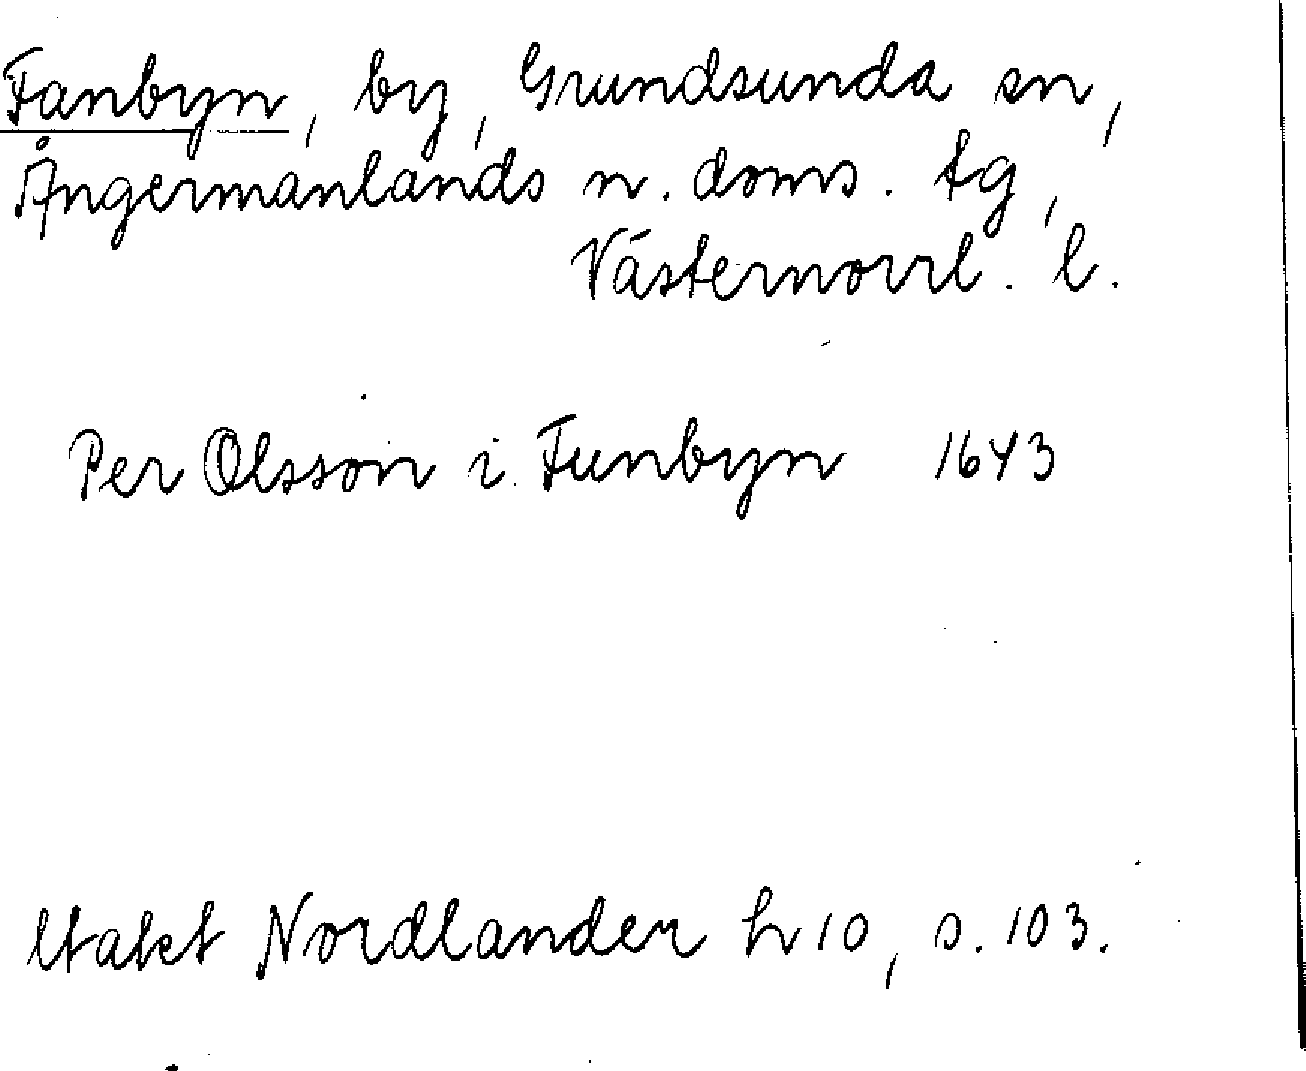 Fanbyn, by, Grundsunda sn,
Ångermanlands n. doms. tg,
Västernorrl. l.
Per Olsson i Funbyn 1643
Utabet Nordlander h 10, s. 103.